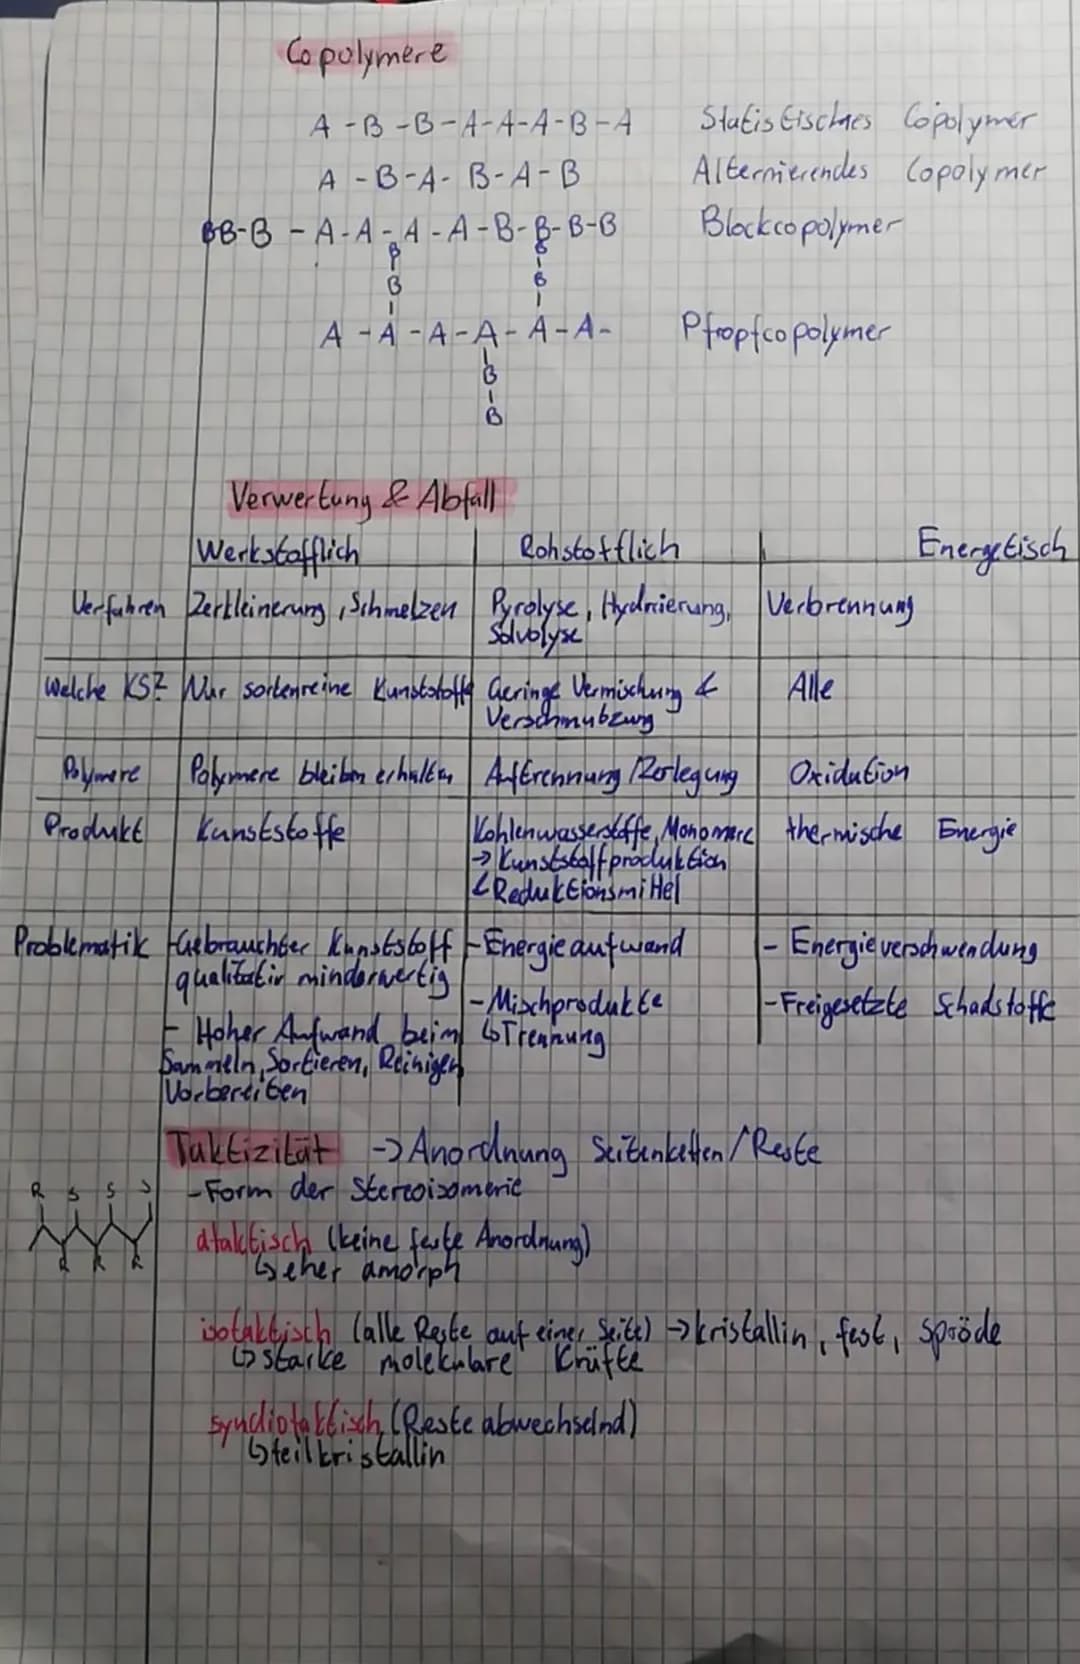 Copolymere
A-B-B-A-A-A-B-A Statistisches Copolymer
A-B-A-B-A-B Alternierendes Copolymer
BB-B-A-A-A-A-B-B-B-B Blockcopolymer
B B
B B
A-A-A-A-A-A- Pfropfcopolymer
B
B
Verwertung & Abfall
Werkstofflich Rohstofflich Energetisch
Verfahren Zerkleinerung, Schmelzen Pyrolyse, Hydrierung, Verbrennung
Solvolyse
Welche KS? Nur sortenreine Kunststoffe Geringe Vermischung & Alle
Verschmutzung
Polymere Polymere bleiben erhalten Auftrennung/Zerlegung Oxidation
Produkt Kunststoffe Kohlenwasserstoffe, Monomere thermische Energie
→ Kunststoffproduktion
Reduktionsmittel
Problematik -Gebrauchter Kunststoff -Energieaufwand - Energieverschwendung
qualitativ minderwertig
-Mischprodukte -Freigesetzte Schadstoffe
- Hoher Aufwand beim ↳Trennung
Sammeln, Sortieren, Reinigen
Vorbereiten
Taktizität -> Anordnung Seitenketten/Reste
R S S S
-Form der Stereoisomerie
ataktisch (keine feste Anordnung)
R R R
↳eher amorph
isotaktisch (alle Reste auf einer Seite) -> kristallin, fest, spröde
↳ starke molekulare Kräfte
syndiotaktisch (Reste abwechselnd)
↳teilkristallin